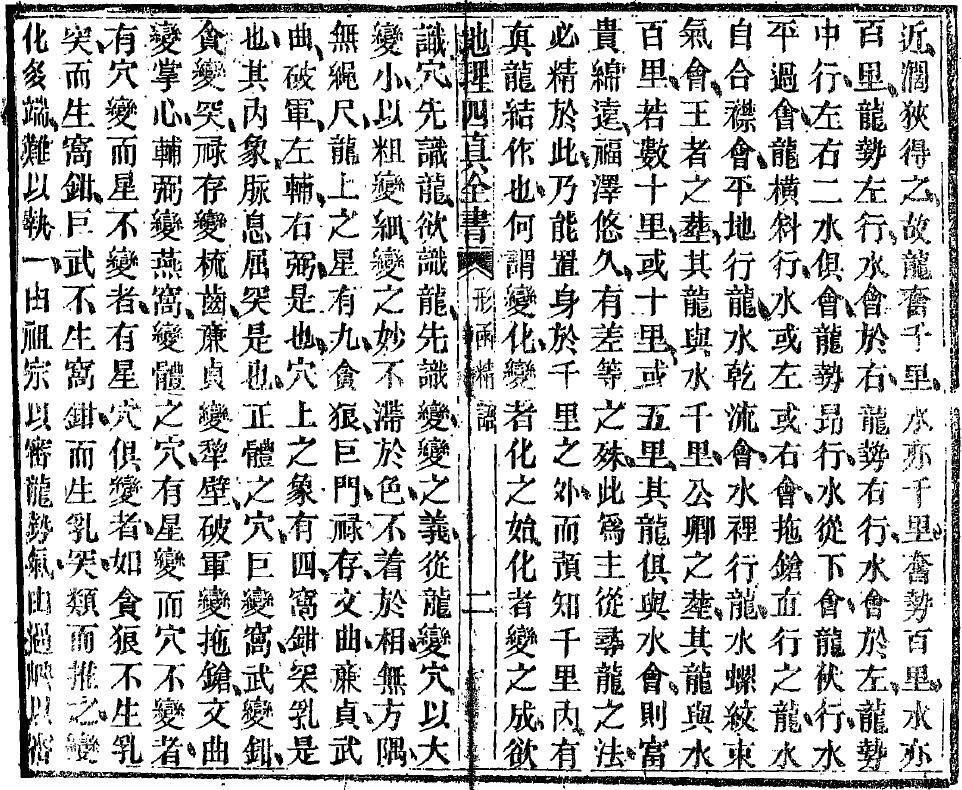 近濶狹得之故龍奮千里水亦千里奮勢百里水亦
百里龍勢左行水會於右龍勢右行水會於左龍勢
中行左右二水俱會龍勢昂行水從下會龍伏行水
平過會龍橫斜行水或左或右會拖鎗直行之龍水
自合襟會平地行龍水乾流會水裡行龍水螺紋東
氣會王者之塟其龍與水千里公卿之塟其龍與水
百里若數十里或十里或五里其龍俱與水會則富
貴綿遠福澤悠久有差等之殊此爲主從尋龍之法
必精於此乃能置身於千里之外而預知千里內有
眞龍結作也何謂變化變者化之始化者變之成欲
地理四眞全書 形函精語 二
識穴先識龍欲識龍先識變變之義從龍變穴以大
變小以粗變細變之妙不滯於色不着於相無方隅
無繩尺龍上之星有九貪狼巨門祿存文曲廉貞武
曲破軍左輔右弼是也穴上之象有四窩鉗突乳是
也其內象脉息屈突是也正體之穴巨變窩武變鉗
貪變突祿存變梳齒廉貞變犂壁破軍變拖鎗文曲
變掌心輔弼變燕窩變體之穴有星變而穴不變者
有穴變而星不變者有星穴俱變者如貪狼不生乳
突而生窩鉗巨武不生窩鉗而生乳突類而推之變
化多端難以執一由祖宗以審龍勢氣由過峽以審